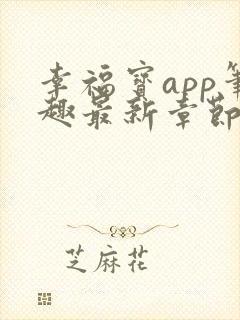 幸福宝app笔
趣最新章节
芝麻花